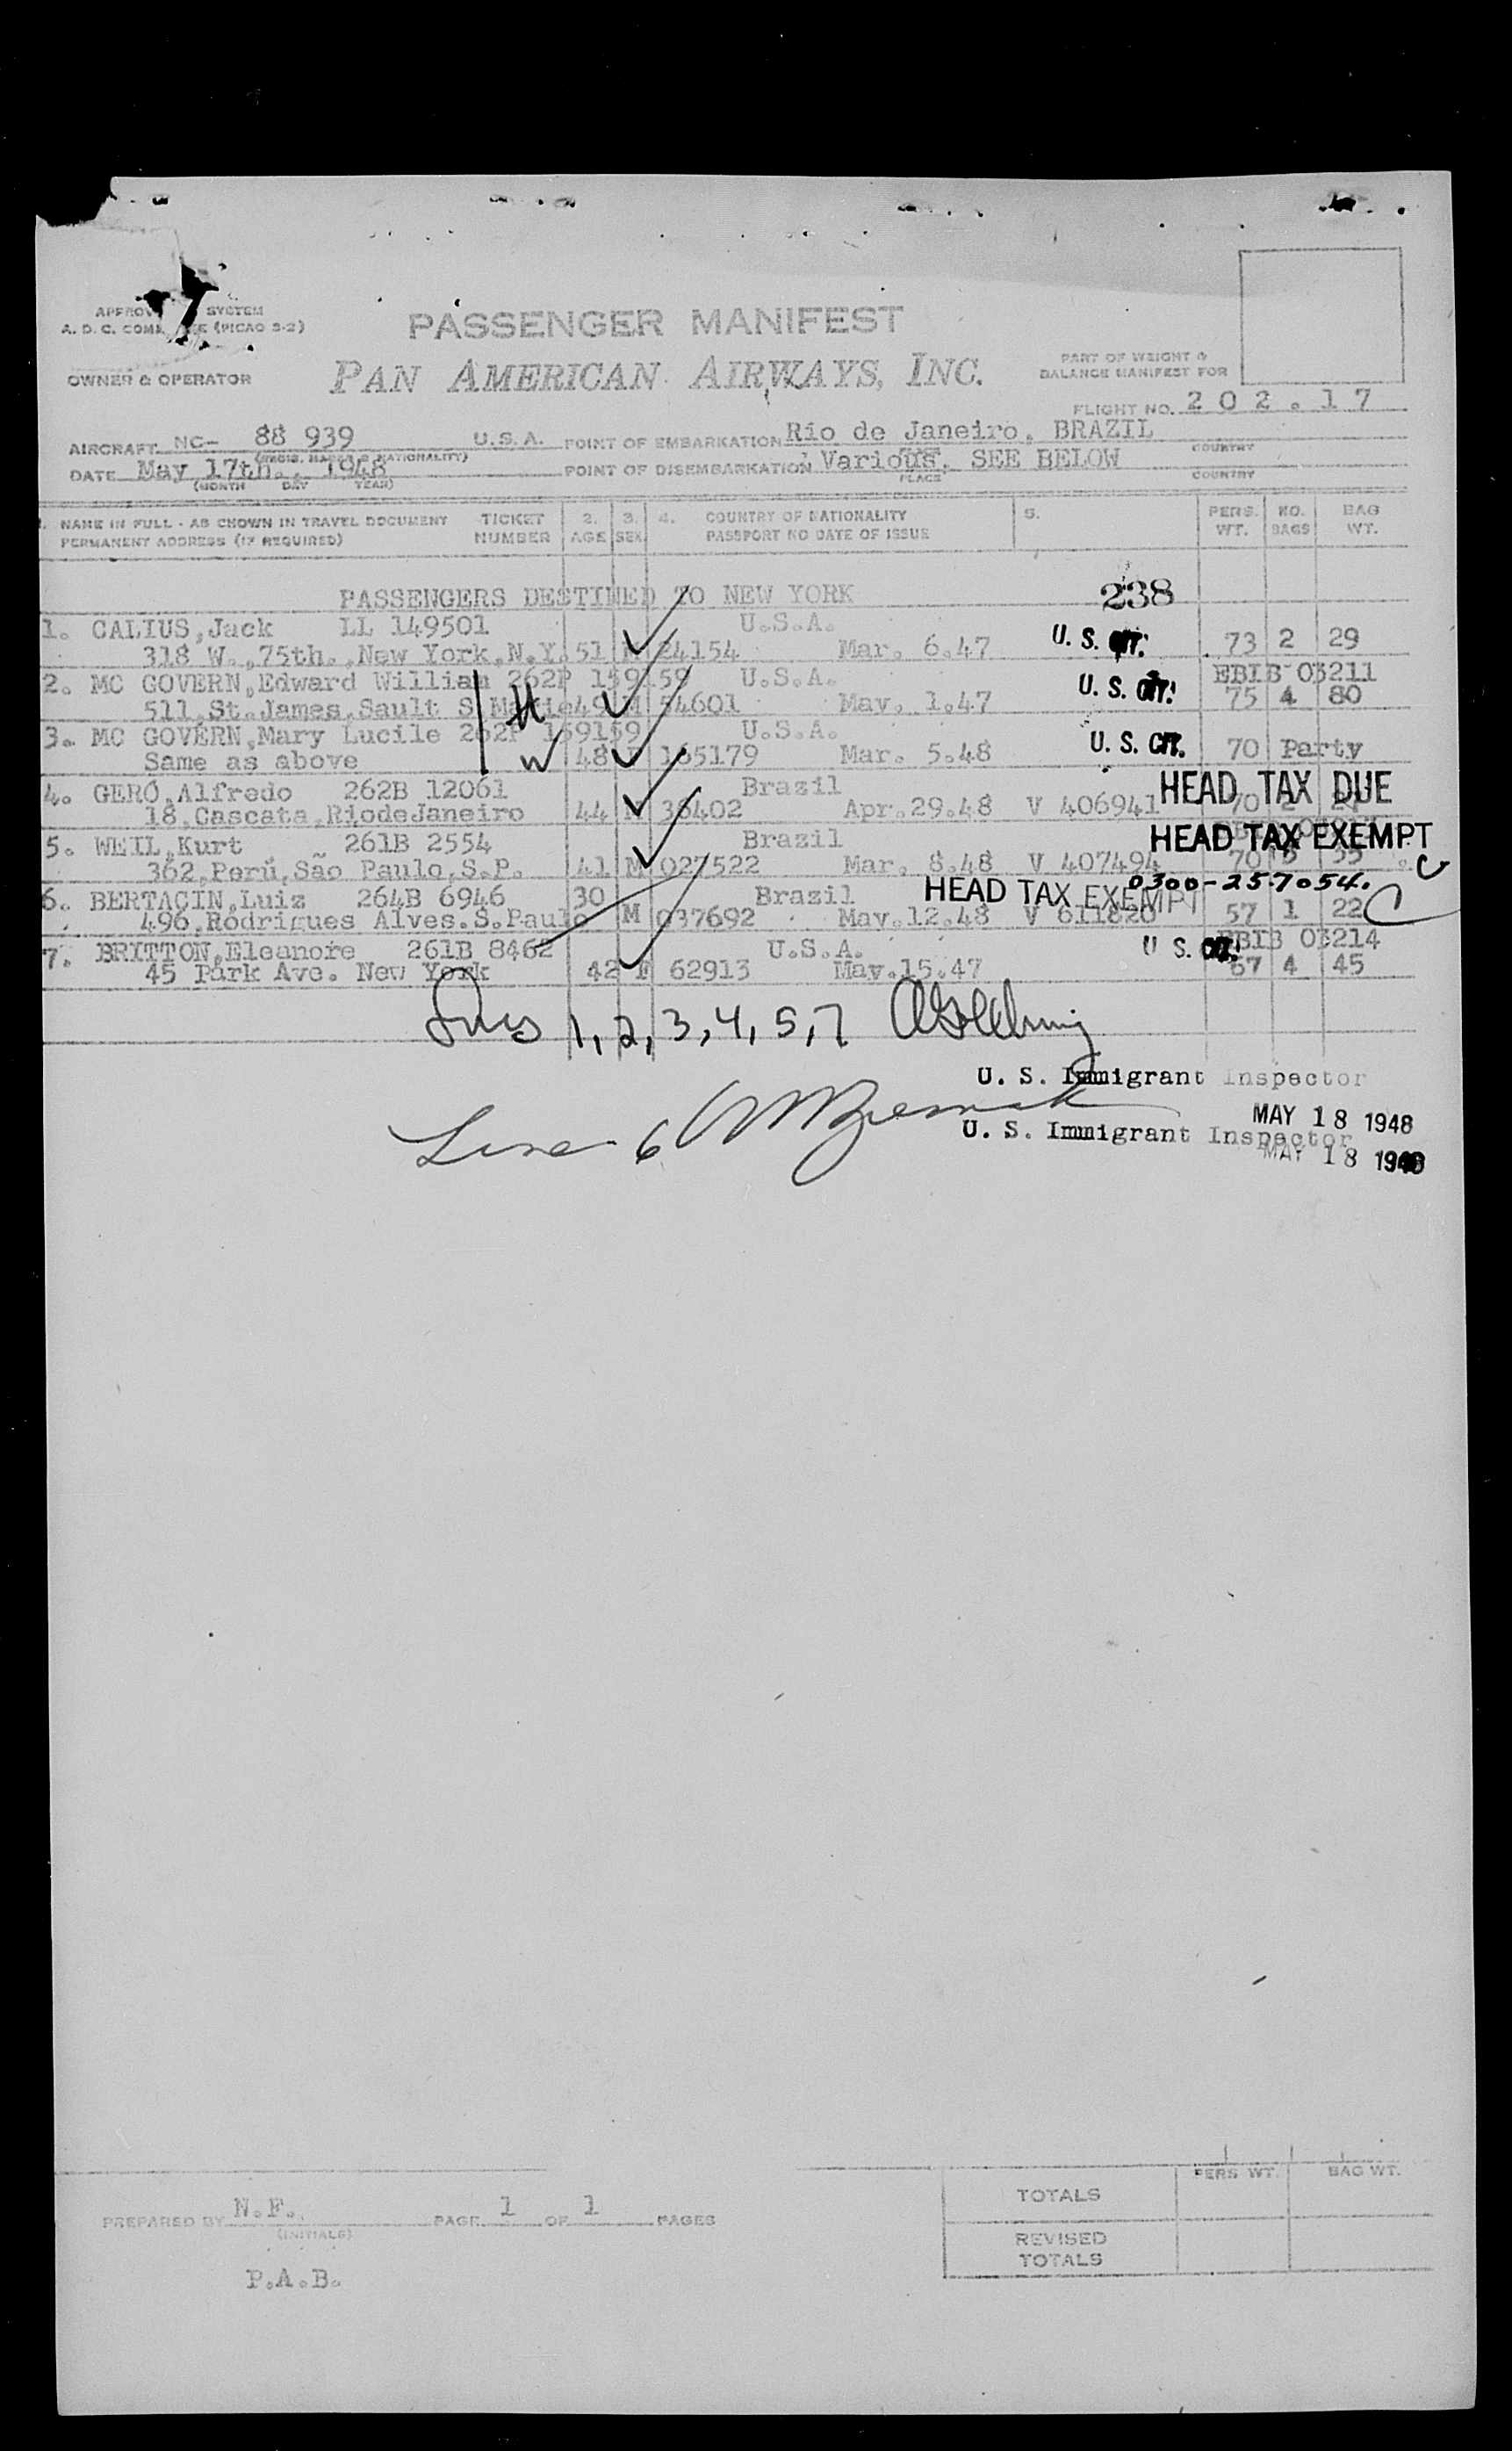 SYSTEM
A. D. C. (PICAO S-2)
PASSENGER MANIFEST
OWNER & OPERATOR
PAN AMERICAN AIRWAYS, INC.
PART OF WEIGHT &
BALANCE MANIFEST FOR
FLIGHT NO. 202.17
AIRCRAFT NC- 88 939 U.S.A. POINT OF EMBARKATION Rio de Janeiro, BRAZIL
COUNTRY
DATE May 17th., 1948 POINT OF DISEMBARKATION Various, SEE BELOW
(MONTH DAY YEAR) PLACE COUNTRY
NAME IN FULL - AS SHOWN IN TRAVEL DOCUMENT TICKET 2. 3. 4. COUNTRY OF NATIONALITY 5. PERS. NO. BAG
PERMANENT ADDRESS (IF REQUIRED) NUMBER AGE SEX PASSPORT NO DATE OF ISSUE WT. BAGS WT.
PASSENGERS DESTINED TO NEW YORK 238
1. CALIUS,Jack LL 149501 U.S.A.
318 W.,75th.,New York,N.Y. 51 M 24154 Mar. 6.47 U. S. CIT. 73 2 29
2. MC GOVERN,Edward William 262P 159159 U.S.A. EBIB 03211
511,St.James,Sault S Marie 49 M 54601 May. 1.47 U. S. CIT. 75 4 80
H
3. MC GOVERN,Mary Lucile 262P 159159 U.S.A.
Same as above W 48 F 165179 Mar. 5.48 U. S. CIT. 70 Party
4. GERÓ,Alfredo 262B 12061 Brazil HEAD TAX DUE
18,Cascata,RiodeJaneiro 44 M 36402 Apr.29.48 V 406941 70 2
5. WEIL,Kurt 261B 2554 Brazil HEAD TAX EXEMPT
362,Perú,São Paulo,S.P. 41 M 027522 Mar. 8.48 V 407494 70
0300-257054.
6. BERTACIN,Luiz 264B 6946 30 Brazil HEAD TAX EXEMPT
496,Rodrigues Alves.S.Paulo M 037692 May.12.48 V 611820 57 1 22
7. BRITTON,Eleanore 261B 8462 U.S.A. U S. CIT. EBIB 03214
45 Park Ave. New York 42 F 62913 May.15.47 67 4 45
Lines 1, 2, 3, 4, 5, 7
U. S. Immigrant Inspector
MAY 18 1948
Line 6
U. S. Immigrant Inspector
MAY 18 1948
PERS WT. BAG WT.
TOTALS
PREPARED BY N.F. PAGE 1 OF 1 PAGES
(INITIALS)
REVISED
TOTALS
P.A.B.